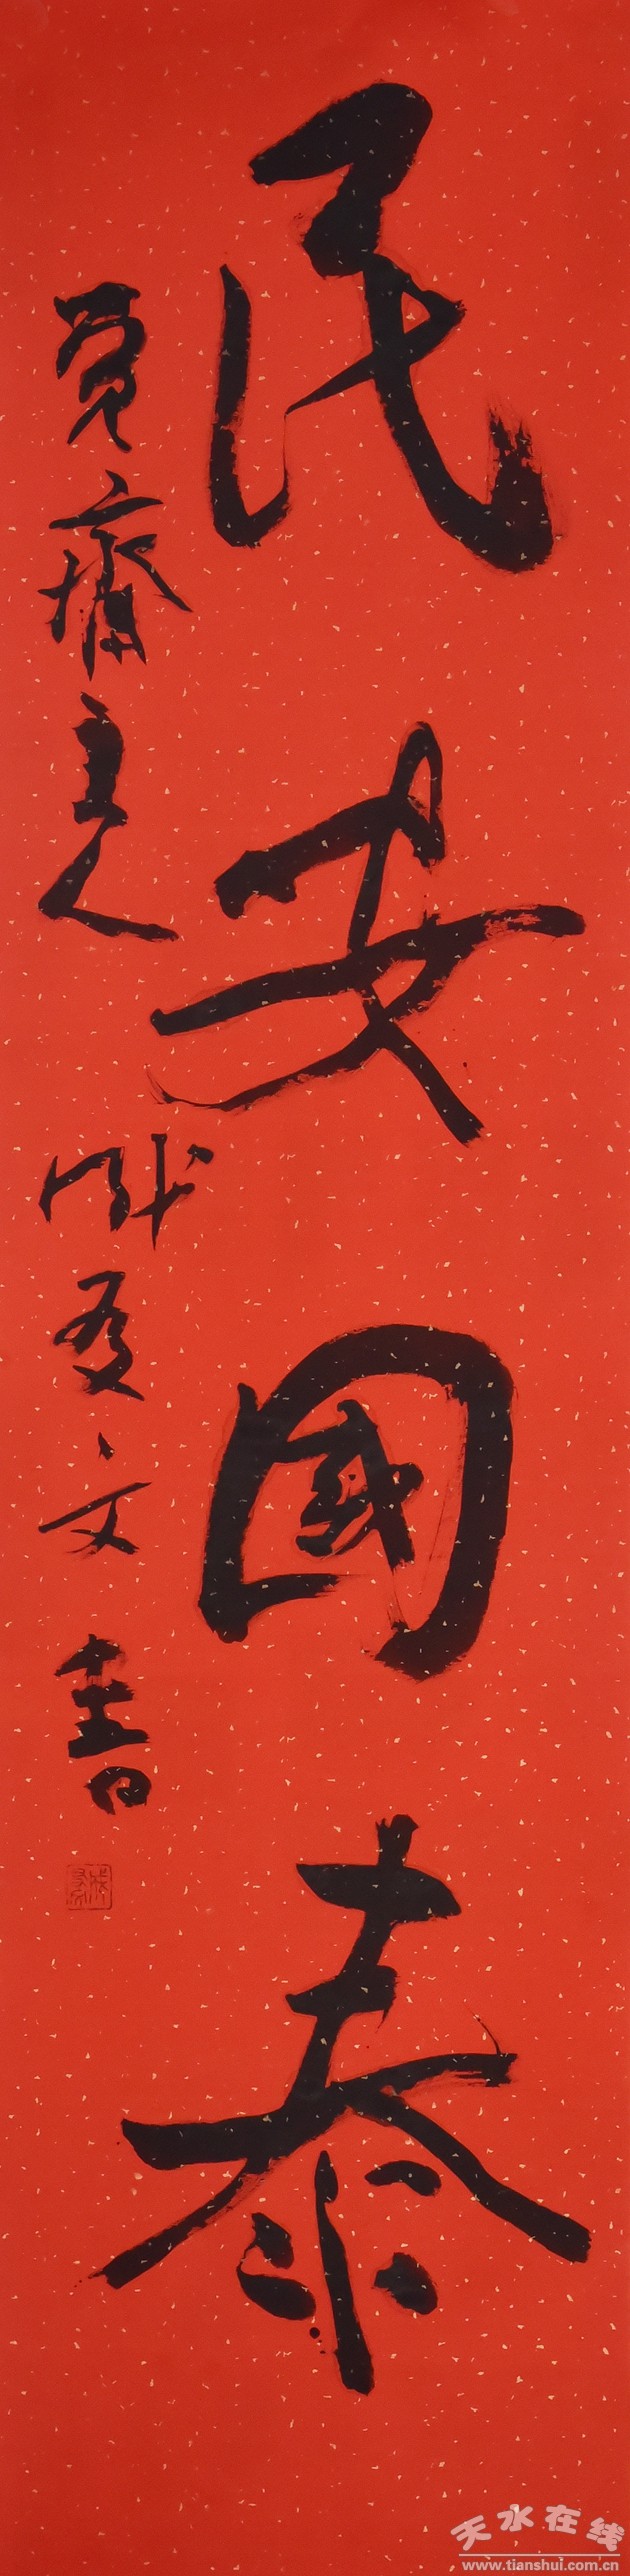 民安国泰
齋主人
文書
天水在线
www.tianshui.com.cn